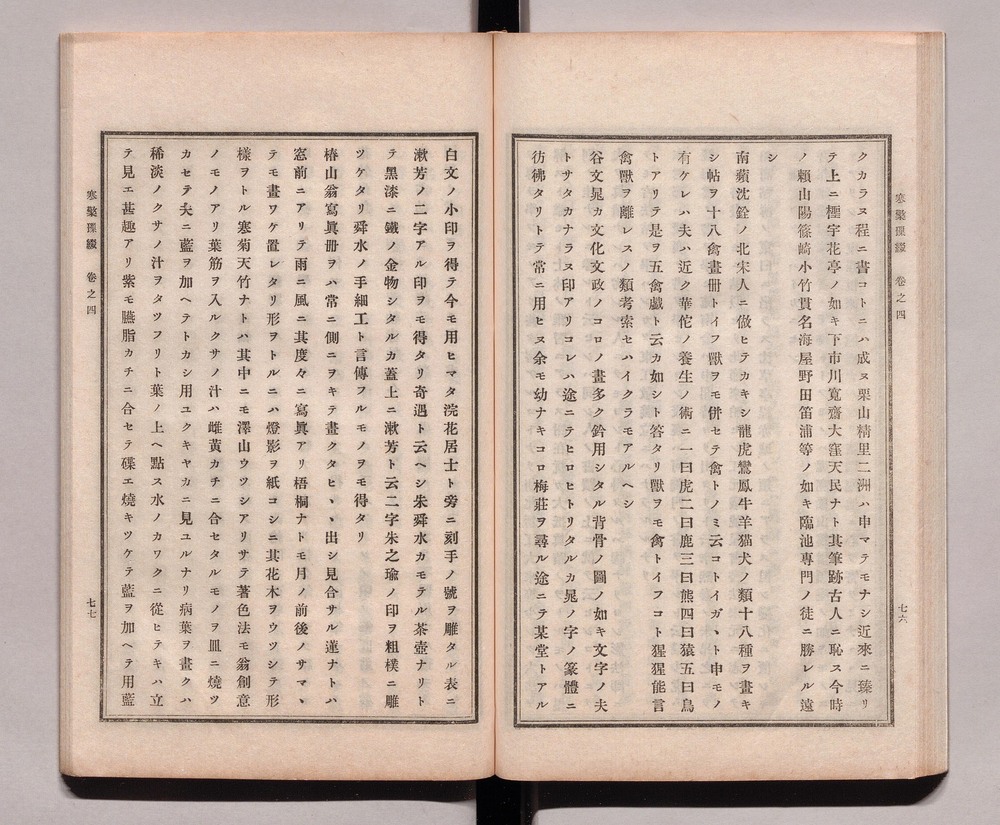 寒檠璅綴 卷之四
七六
クカラヌ程ニ書コトニハ成ヌ栗山精里二洲ハ申マテモナシ近來ニ臻リ
テ上ニ檉宇花亭ノ如キ下市川寬齋大窪天民ナト其筆跡古人ニ恥ス今時
ノ賴山陽篠崎小竹貫名海屋野田笛浦等ノ如キ臨池專門ノ徒ニ勝レル遠
シ
南蘋沈銓ノ北宋人ニ倣ヒテカキシ龍虎鸞鳳牛羊猫犬ノ類十八種ヲ畫キ
シ帖ヲ十八禽畫冊トイフ獸ヲモ併セテ禽トノミ云コトイカヾト申モノ
有ケレハ夫ハ近ク華佗ノ養生ノ術ニ一曰虎二曰鹿三曰熊四曰猿五曰鳥
トアリテ是ヲ五禽戲ト云カ如シト答タリ獸ヲモ禽トイフコト猩猩能言
禽獸ヲ離レスノ類考索セハイクラモアルヘシ
谷文晁カ文化文政ノコロノ畫多ク鈐用シタル背骨ノ圖ノ如キ文字ノ夫
トサタカナラヌ印アリコレハ途ニテヒロヒトリタルカ晁ノ字ノ篆體ニ
彷彿タリトテ常ニ用ヒヌ余モ幼ナキコロ梅莊ヲ尋ル途ニテ某堂トアル
白文ノ小印ヲ得テ今モ用ヒマタ浣花居士ト旁ニ刻手ノ號ヲ雕タル表ニ
漱芳ノ二字アル印ヲモ得タリ奇遇ト云ヘシ朱舜水カモテル茶壺ナリト
テ黑漆ニ鐵ノ金物シタルカ蓋上ニ漱芳ト云二字朱之瑜ノ印ヲ粗樸ニ雕
ツケタリ舜水ノ手細工ト言傳フルモノヲモ得タリ
椿山翁寫眞冊ヲハ常ニ側ニヲキテ畫クタヒヽヽ出シ見合サル蓮ナトハ
窓前ニアリテ雨ニ風ニ其度々ニ寫眞アリ梧桐ナトモ月ノ前後ノサマヽ
テモ畫ワケ置レタリ形ヲトルニハ燈影ヲ紙コシニ其花木ヲウツシテ形
樣ヲトル寒菊天竹ナトハ其中ニモ澤山ウツシアリサテ著色法モ翁創意
ノモノアリ葉筋ヲ入ルクサノ汁ハ雌黃カチニ合セタルモノヲ皿ニ燒ツ
カセテ夫ニ藍ヲ加ヘテトカシ用ユクキヤカニ見ユルナリ病葉ヲ畫クハ
稀淡ノクサノ汁ヲタツフリト葉ノ上ヘ點ス水ノカワクニ從ヒテキハ立
テ見エ甚趣アリ紫モ臙脂カチニ合セテ碟エ燒キツケテ藍ヲ加ヘテ用藍
寒檠璅綴 卷之四
七七